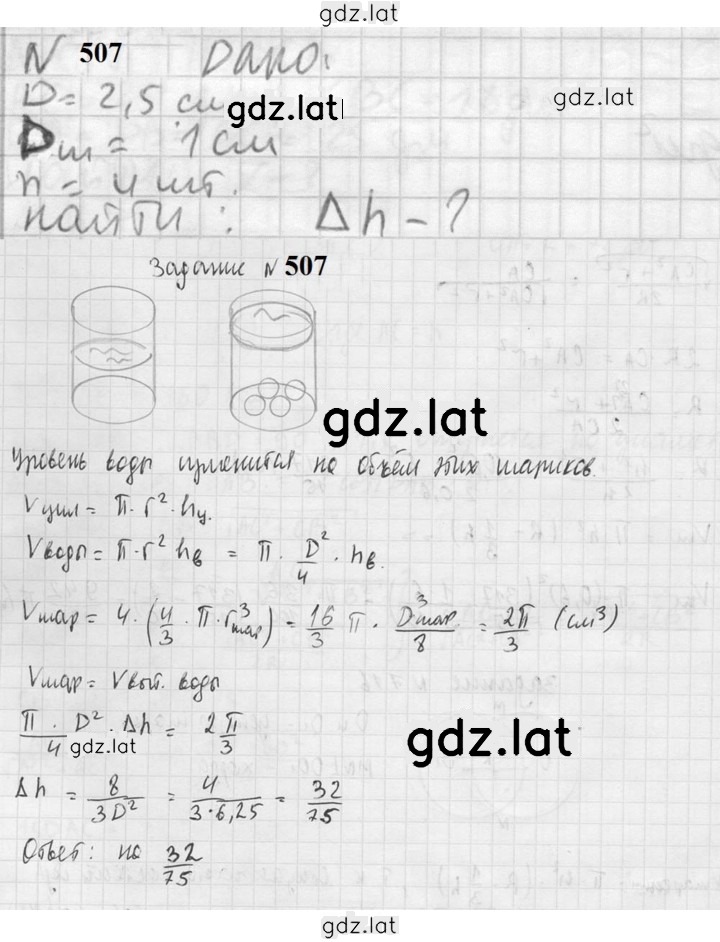 gdz.lat
N 507 Дано:
D = 2,5 см gdz.lat gdz.lat
Dш = 1 см
n = 4 шт.
найти: Δh - ?
Задание N 507
gdz.lat
Уровень воды изменится на объём этих шариков.
Vцил = π · r² · hц.
Vводы = π · r² hв = π · D²/4 · hв.
Vшар = 4 · (4/3 · π · r³шар) = 16/3 π · D³шар/8 = 2π/3 (см³)
Vшар = Vвыт. воды
π · D²/4 · Δh = 2π/3
gdz.lat gdz.lat
Δh = 8/3D² = 4/3·6,25 = 32/75
Ответ: на 32/75
gdz.lat